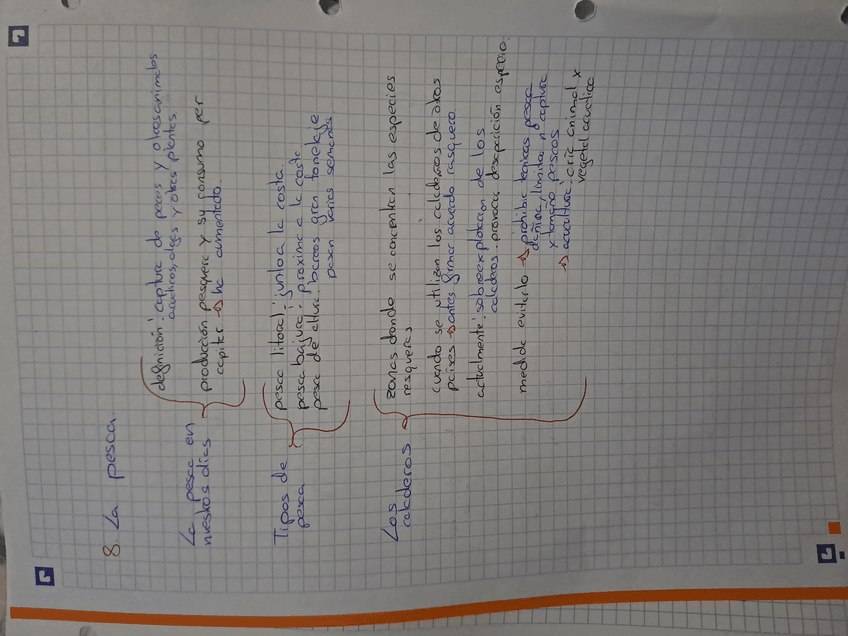 8. La pesca
La pesca en
nuestros días
definición: captura de peces y otros animales
acuáticos, algas y otras plantas
producción pesquera y su consumo per
capita → ha aumentado
Tipos de
pesca
pesca litoral: junto a la costa.
pesca bajura: próxima a la costa
pesca de altura: barcos gran tonelaje
pasan varias semanas
Los
caladeros
zonas donde se concentran las especies
resqueras
cuando se utilizan los caladeros de otros
países → antes firmar acuerdo resquero
actualmente: sobreexplotación de los
caladeros: provoca desaparición especie
medida evitarlo → prohibir tecnicas pesca
dañina, limitar nº captura
y tamaño pescos
→ acuicultura: cría animal y
vegetal acuatica